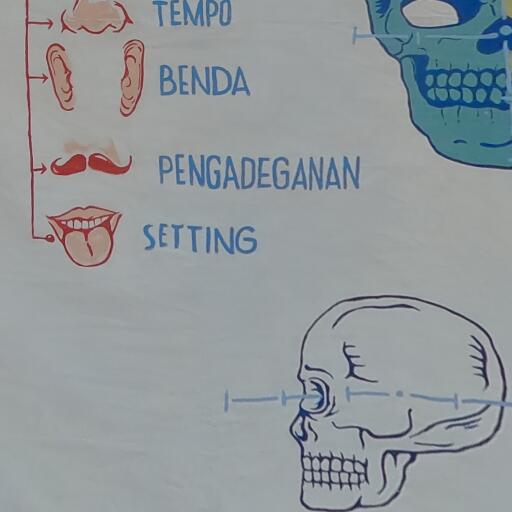 TEMPO
BENDA
PENGADEGANAN
SETTING